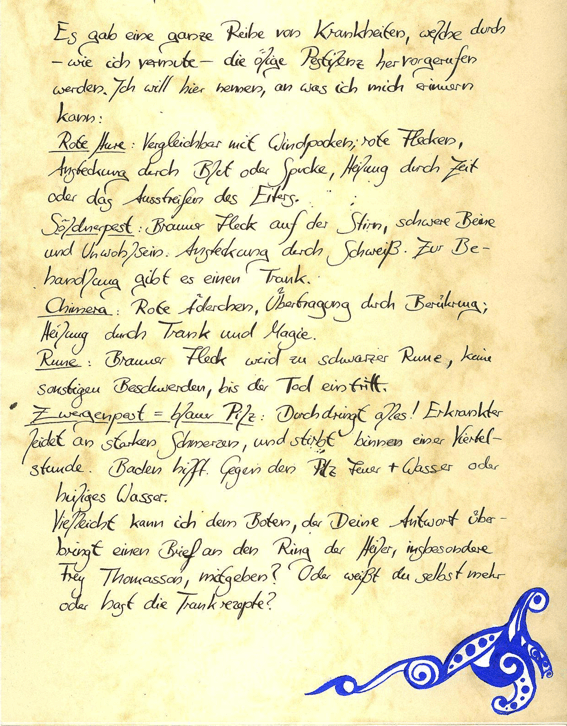 Es gab eine ganze Reihe von Krankheiten, welche durch
– wie ich vermute – die ölige Pestilenz hervorgerufen
werden. Ich will hier nennen, an was ich mich erinnern
kann:
Rote Hure: Vergleichbar mit Windpocken; rote Flecken,
Ansteckung durch Blut oder Spucke, Heilung durch Zeit
oder das Ausstreifen des Eiters.
Söldnerpest: Brauner Fleck auf der Stirn, schwere Beine
und Unwohlsein. Ansteckung durch Schweiß. Zur Be-
handlung gibt es einen Trank.
Chimera: Rote Äderchen, Übertragung durch Berührung;
Heilung durch Trank und Magie.
Rune: Brauner Fleck wird zu schwarzer Rune, keine
sonstigen Beschwerden, bis der Tod eintritt.
Zwergenpest = blauer Pilz: Durchdringt alles! Erkrankter
leidet an starken Schmerzen, und stirbt binnen einer Viertel-
stunde. Baden hilft. Gegen den Pilz Feuer + Wasser oder
heiliges Wasser.
Vielleicht kann ich dem Boten, der Deine Antwort über-
bringt einen Brief an den Ring der Heiler, insbesondere
Frey Thomasson, mitgeben? Oder weißt du selbst mehr
oder hast die Trankrezepte?